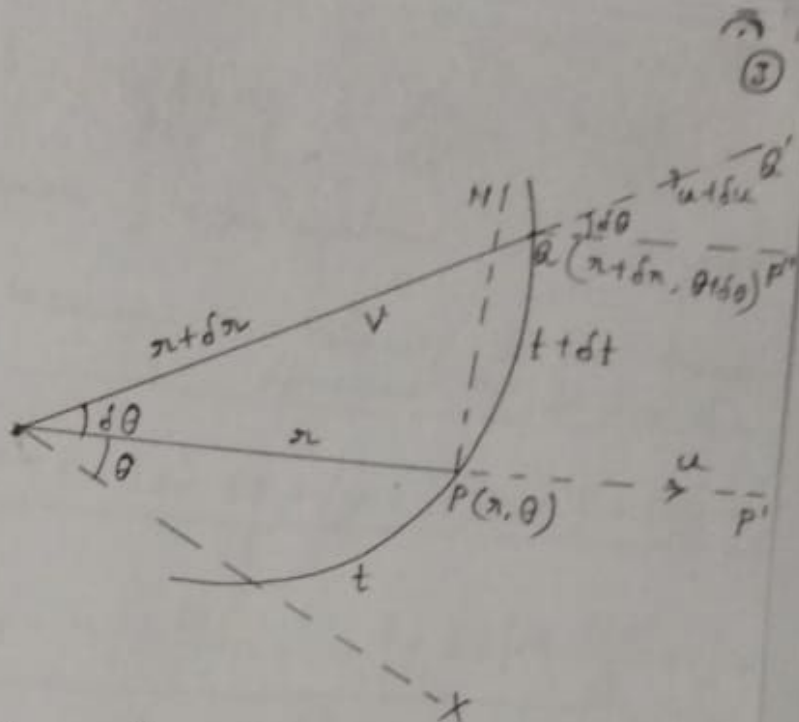 ③
Q'
u+δu
M
δθ
Q (r+δr, θ+δθ) P''
r+δr
V
t+δt
δθ
r
θ
u
P(r,θ)
P'
t
X